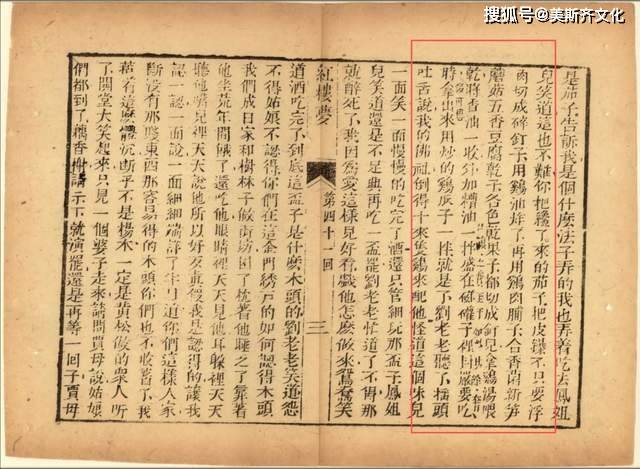 搜狐号@美斯齐文化
是茄子告訴我是個什麼法子弄的我也弄着吃去鳳姐
兒笑道這也不難你把纔下來的茄子把皮了只要淨
肉切成碎釘子用鷄油炸了再用鷄肉脯子合香菌新笋
蘑菇五香豆腐乾子各色乾菓子都切成釘兒拿鷄湯煨
乾將香油一收外加糟油一拌盛在磁礶子裡封嚴要吃
時拿出來用炒的鷄瓜子一拌就是了劉老老聽了搖頭
吐舌說我的佛祖倒得十來隻鷄來配他怪道這個味兒
一面笑一面慢慢的吃完了酒還只管細玩那盃子鳳姐
兒笑道還是不足興再吃一盃罷劉老老忙道了不得那
就醉死了我因爲愛這樣兒好看虧他怎麼做來鴛鴦笑
紅樓夢
第四十一回
三
道酒吃完了到底這盃子是什麼木頭的劉老老笑道怨
不得姑娘不認得你們在這金門綉戶的如何認得木頭
我們成日家和樹林子做街坊困了枕着他睡乏了靠着
他坐荒年間餓了還吃他眼睛裡天天見他耳躲裡天天
聽他嘴兒裡天天說他所以好歹真假我是認得的讓我
認一認一面說一面細細端詳了半日道你們這樣人家
斷沒有那賤東西那容易得的木頭你們也不收着了我
掂着這麼體沉斷乎不是楊木一定是黃松做的衆人聽
了閧堂大笑起來只見一個婆子走來請問賈母說姑娘
們都到了藕香榭請示下就演罷還是再等一回子賈母